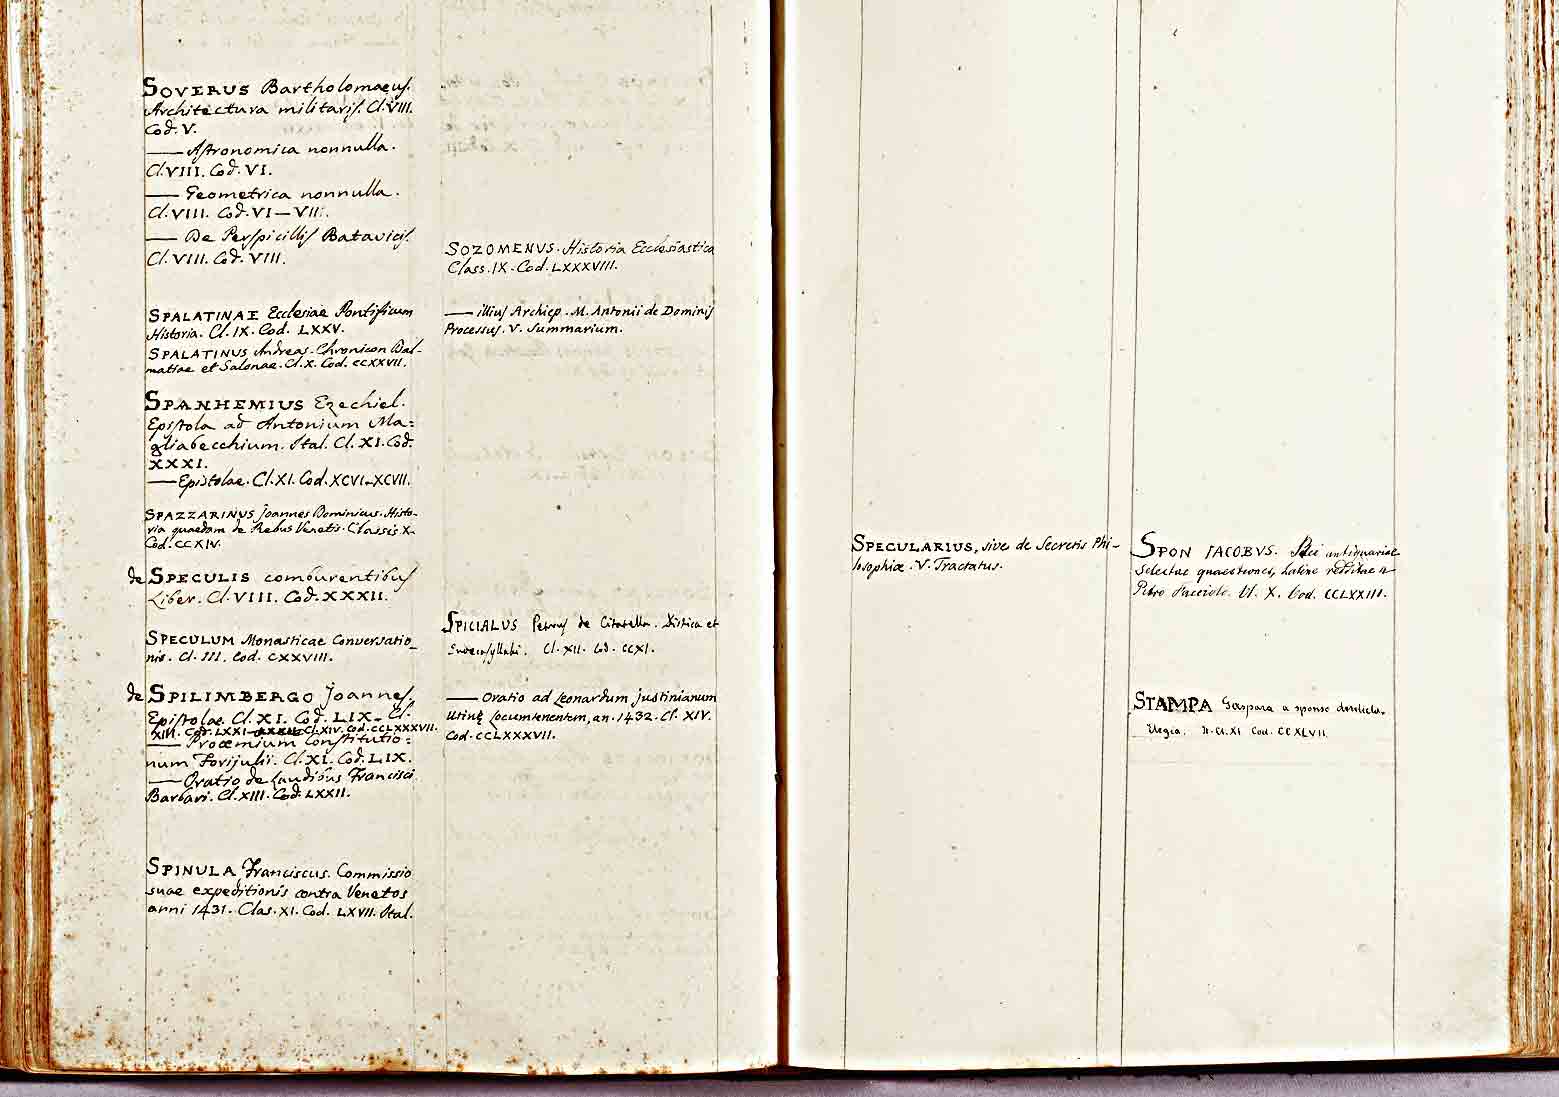 SOVERUS Bartholomaeus.
Architectura militaris. Cl. VIII.
Cod. V.
— Astronomica nonnulla.
Cl. VIII. Cod. VI.
— Geometrica nonnulla.
Cl. VIII. Cod. VI — VII.
— De Perspicillis Batavicis.
Cl. VIII. Cod. VIII.
SPALATINAE Ecclesiae Pontificum
Historia. Cl. IX. Cod. LXXV.
SPALATINUS Andreas. Chronicon Dal-
matiae et Salonae. Cl. X. Cod. CCXXVII.
SPANHEMIUS Ezechiel.
Epistola ad Antonium Ma=
gliabecchium. Ital. Cl. XI. Cod.
XXXI.
— Epistolae. Cl. XI. Cod. XCVI-XCVII.
SPAZZARINUS Joannes Dominicus. Histo-
ria quaedam de Rebus Venetis. Classis X.
Cod. CCXIV.
de SPECULIS comburentibus
Liber. Cl. VIII. Cod. XXXII.
SPECULUM Monasticae Conversatio-
nis. Cl. III. Cod. CXXVIII.
de SPILIMBERGO Joannes.
Epistolae. Cl. XI. Cod. LIX - Cl.
XIII. Cod. LXXI Cl. XIV. Cod. CCLXXXVII.
— Prooemium Constitutio=
num Forijulii. Cl. XI. Cod. LIX.
— Oratio de Laudibus Francisci
Barbari. Cl. XIII. Cod. LXXII.
SPINULA Franciscus. Commissio
suae expeditionis contra Venetos
anni 1431. Clas. XI. Cod. LXVII. Ital.
SOZOMENUS. Historia Ecclesiastica
Class. IX. Cod. LXXXVIII.
— illius Archiep. M. Antonii de Dominis
Processus. V. Summarium.
SPICIALUS Petrus de Citatella. Distica et
Cl. XII. Cod. CCXI.
— Oratio ad Leonardum Justinianum
Utinę Locumtenentem, an. 1432. Cl. XIV.
Cod. CCLXXXVII.
SPECULARIUS, sive de Secretis Phi-
losophiæ. V. Tractatus.
SPON JACOBVS. Rei antiquariae
Selectae quaestiones, Latine redditae a
Petro Cl. X. Cod. CCLXXIII.
STAMPA Gaspara a sponso derelicta.
Elegia. It. Cl. XI Cod. CCXLVII.